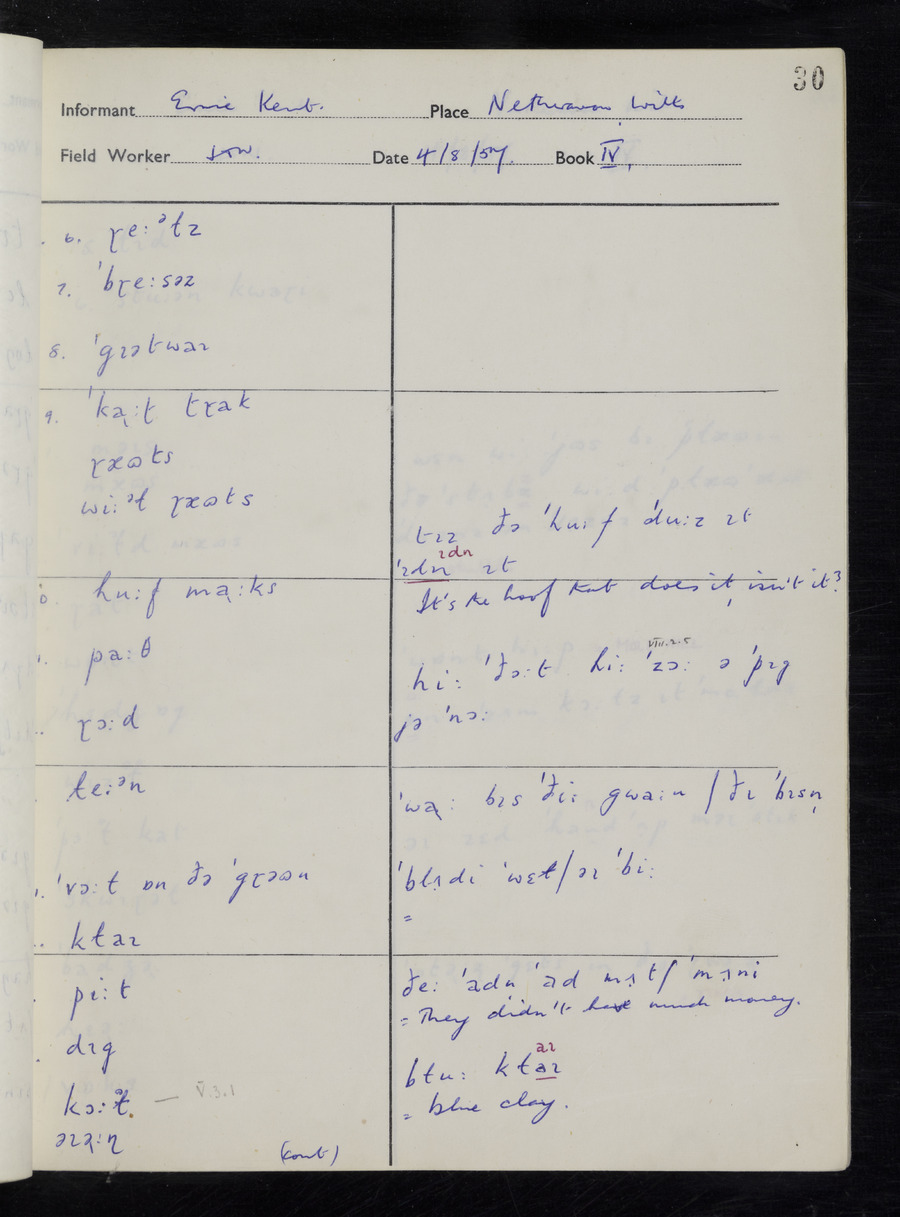 30
Informant Ernie Kent. Place Netheravon Wilts
Field Worker Date 4/8/57. Book IV.
6. ɽe:ᵊtz
7. ˈbɽe:səz
8. ˈgɪətwaɪ
9. ˈkạ:t tɽak
ɽæɷts
wi:ᵊt ɽæɷts
hu:f mạ:ks
pa:θ
ɽɔ:d
te:ᵊn
ˈvɔ:t ɒn ðə ˈgɽəɷn
ktaɪ
pi:t
dɪg
kɔ:ᵊt. — V.3.1
(cont)
tɪz ðə ˈhu:f ˈdu:z ɪt
ɪdn
ˈɪdn ɪt
It's the hoof that does it, isn't it?
VIII.2.5
hi: ˈðɔ:t hi: ˈzɔ: ə ˈpɪg
jə ˈnɔ:
ˈwạ: bɪs ˈði: gwa:n / ðɪ ˈbɪsn̩
ˈblʌdi ˈwɛt / əɪ ˈbi:
=
ðe: ˈadn ˈad mʌt / ˈmʌni
= They didn't have much money.
aɪ
btu: ktaɪ
= blue clay.